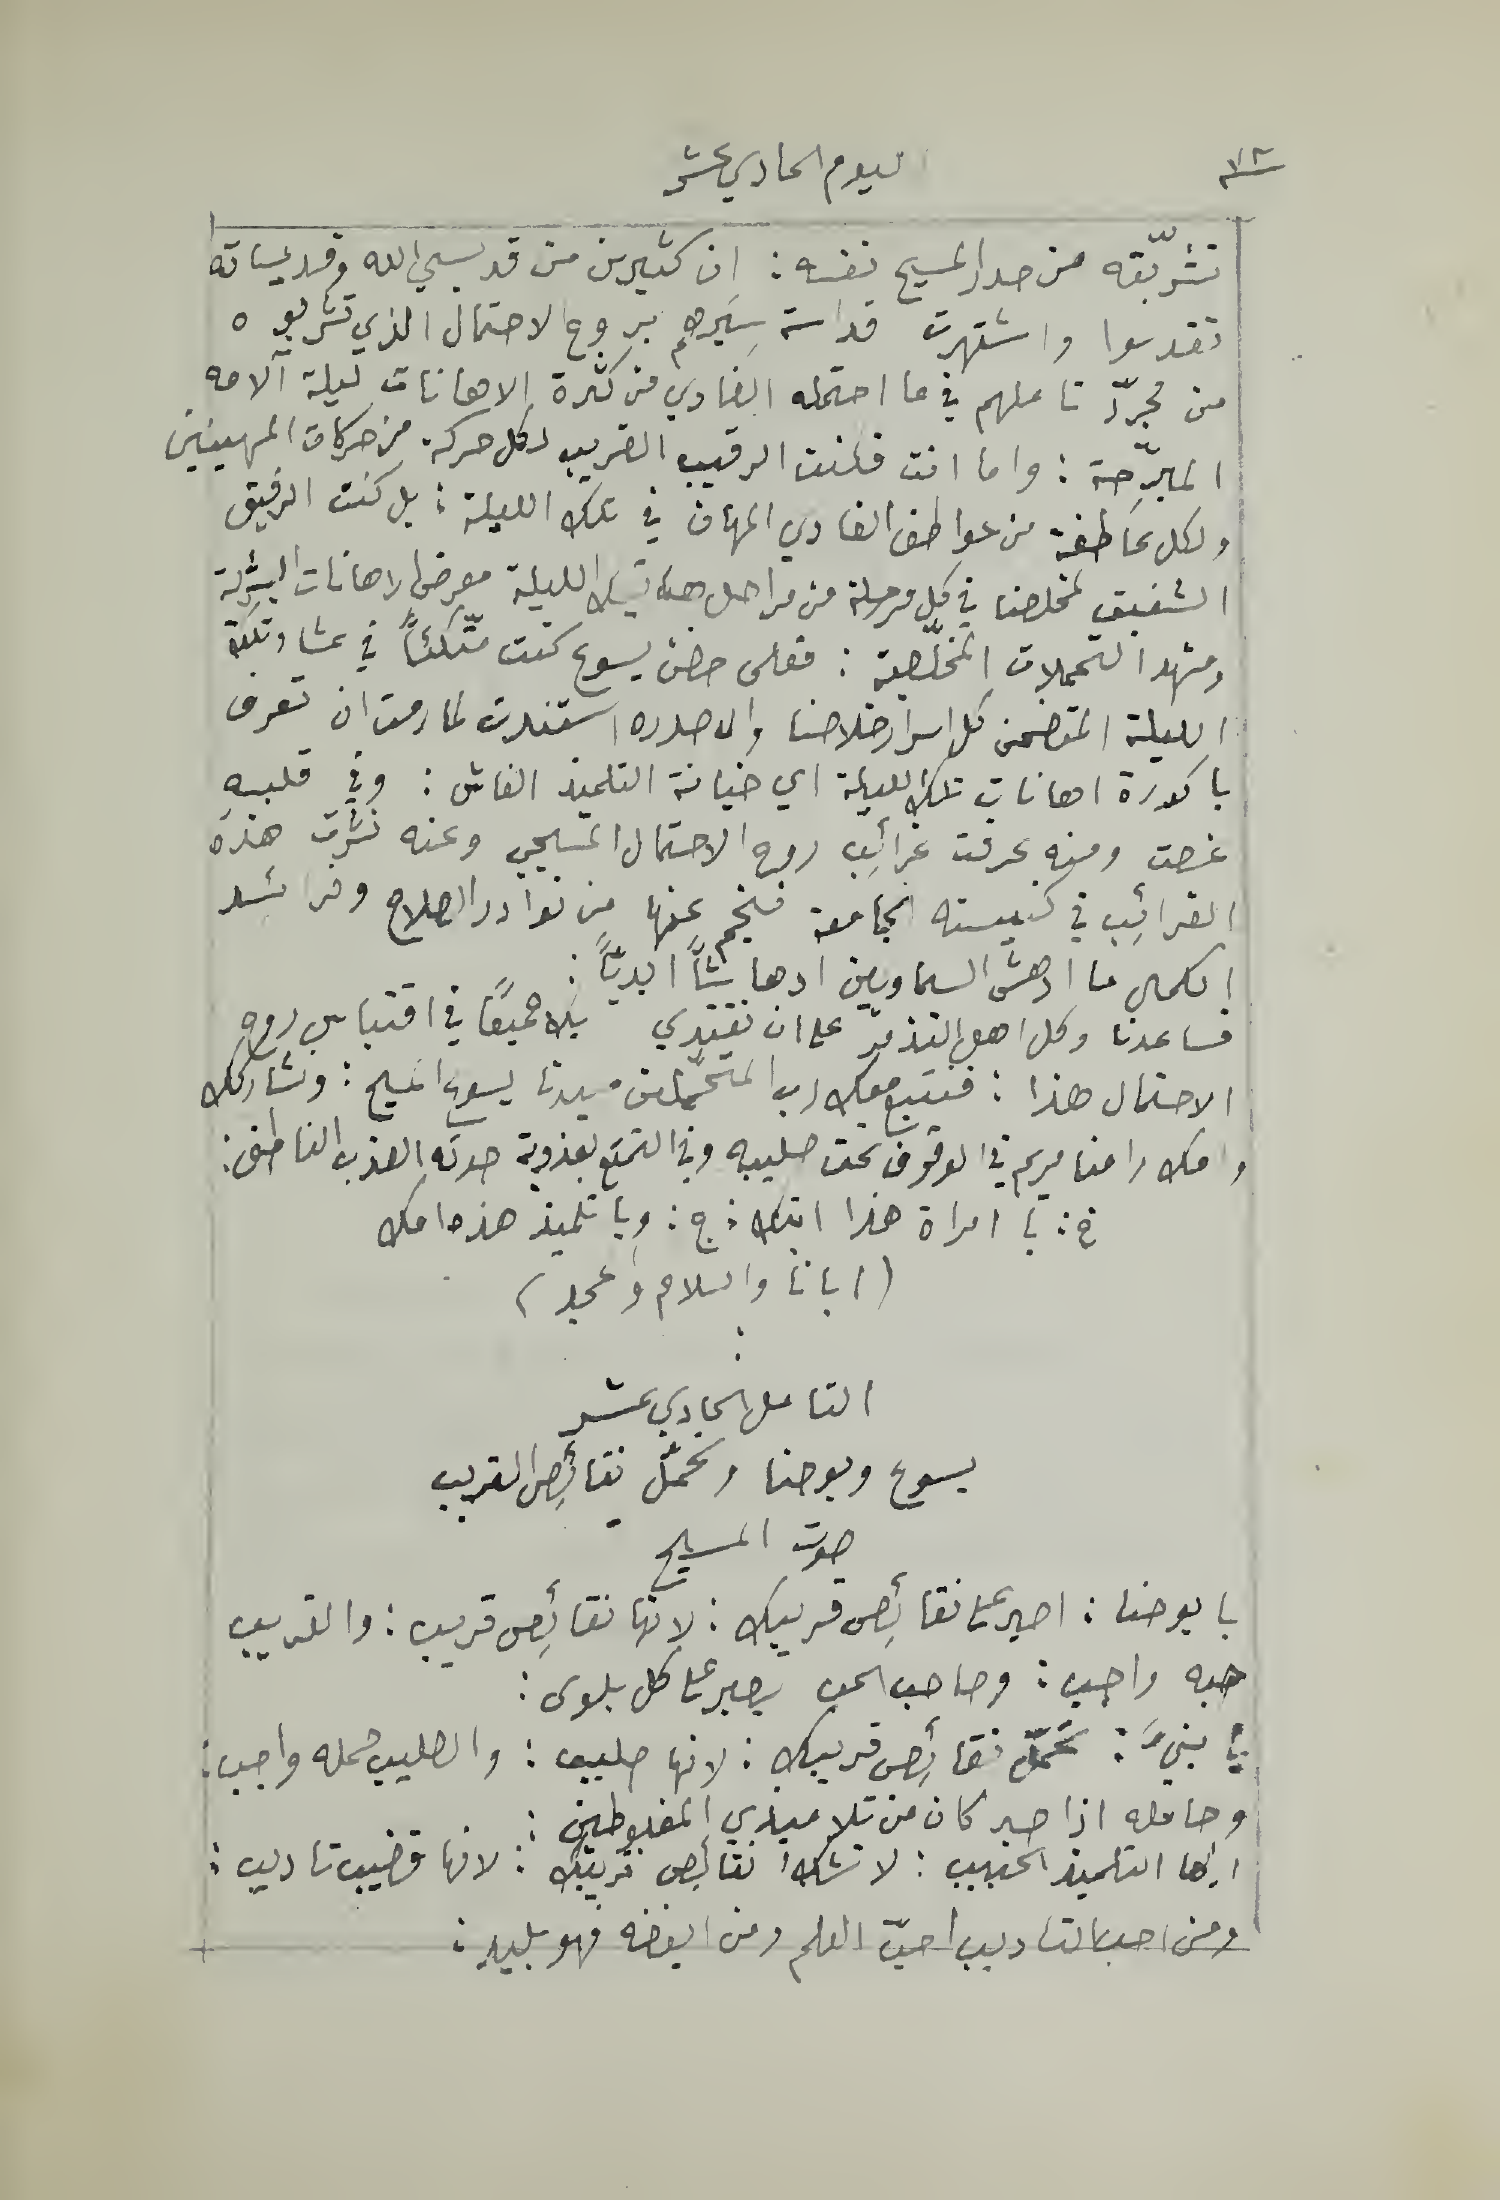 ٧٢
اليوم الحادي عشر
تشربته من صدر المسيح نفسه : ان كثيرين من قديسي الله وقديساته
تقدسوا واشتهرت قداسة سيرهم بروح الاحتمال الذي تشربوه
من مجرّد تاملهم في ما احتمله الفادي من كثرة الاهانات ليلة آلامه
المبرّحة : واما انت فكنت الرقيب القريب لكل حركة من حركات المهينين
ولكل عاطفة من عواطف الفادي المهان في تلك الليلة : بل كنت الرفيق
الشفيق لمخلصنا في كل مرحلة من مراحل تلك الليلة معرض الاهانات البشرية
ومشهد التحملات المخلّصية : فعلى حضن يسوع كنت متّكئاً في عشاء تلك
الليلة المتضمن كل اسرار خلاصنا والى صدره استندت لما رمت ان تعرف
باكورة اهانات تلك الليلة اي خيانة التلميذ الغاش : وفي قلبه
غصت ومنه عرفت غرائب روح الاحتمال المسيحي وعنه نشرت هذه
الغرائب في كنيسته الجامعة فنجم عنها من نوادر الصلاح وفرائد
الكمال ما ادهش السماويين ادهاشاً ابديّاً :
فساعدنا وكل اهل التذمّر على ان نقتدي بك جميعًا في اقتباس روح
الاحتمال هذا : فنتبع معك رب المتحمّلين سيدنا يسوع المسيح : ونشاركك
وامك وامنا مريم في الوقوف تحت صليبه وفي التمتع بعذوبة صوته العذب الناطق :
خ : يا امراة هذا ابنك : ج : ويا تلميذ هذه امك
( ابانا والسلام والمجد )
التامل الحادي عشر
يسوع ويوحنا وتحمّل نقائص القريب
صوت المسيح
يا يوحنا : اصبر على نقائص قريبك : لانها نقائص قريب : والقريب
حبه واجب : وصاحب الحب يصبر على كل بلوى :
يا بنيّ : تحمّل نقائص قريبك : لانها صليب : والصليب حمله واجب :
وحامله اذا صبر كان من تلاميذي المغبوطين :
ايها التلميذ الحبيب : لا تشك نقائص قريبك : لانها قضيب تاديب :
ومن احب التاديب احبّ العلم ومن ابغضه فهو بليد :